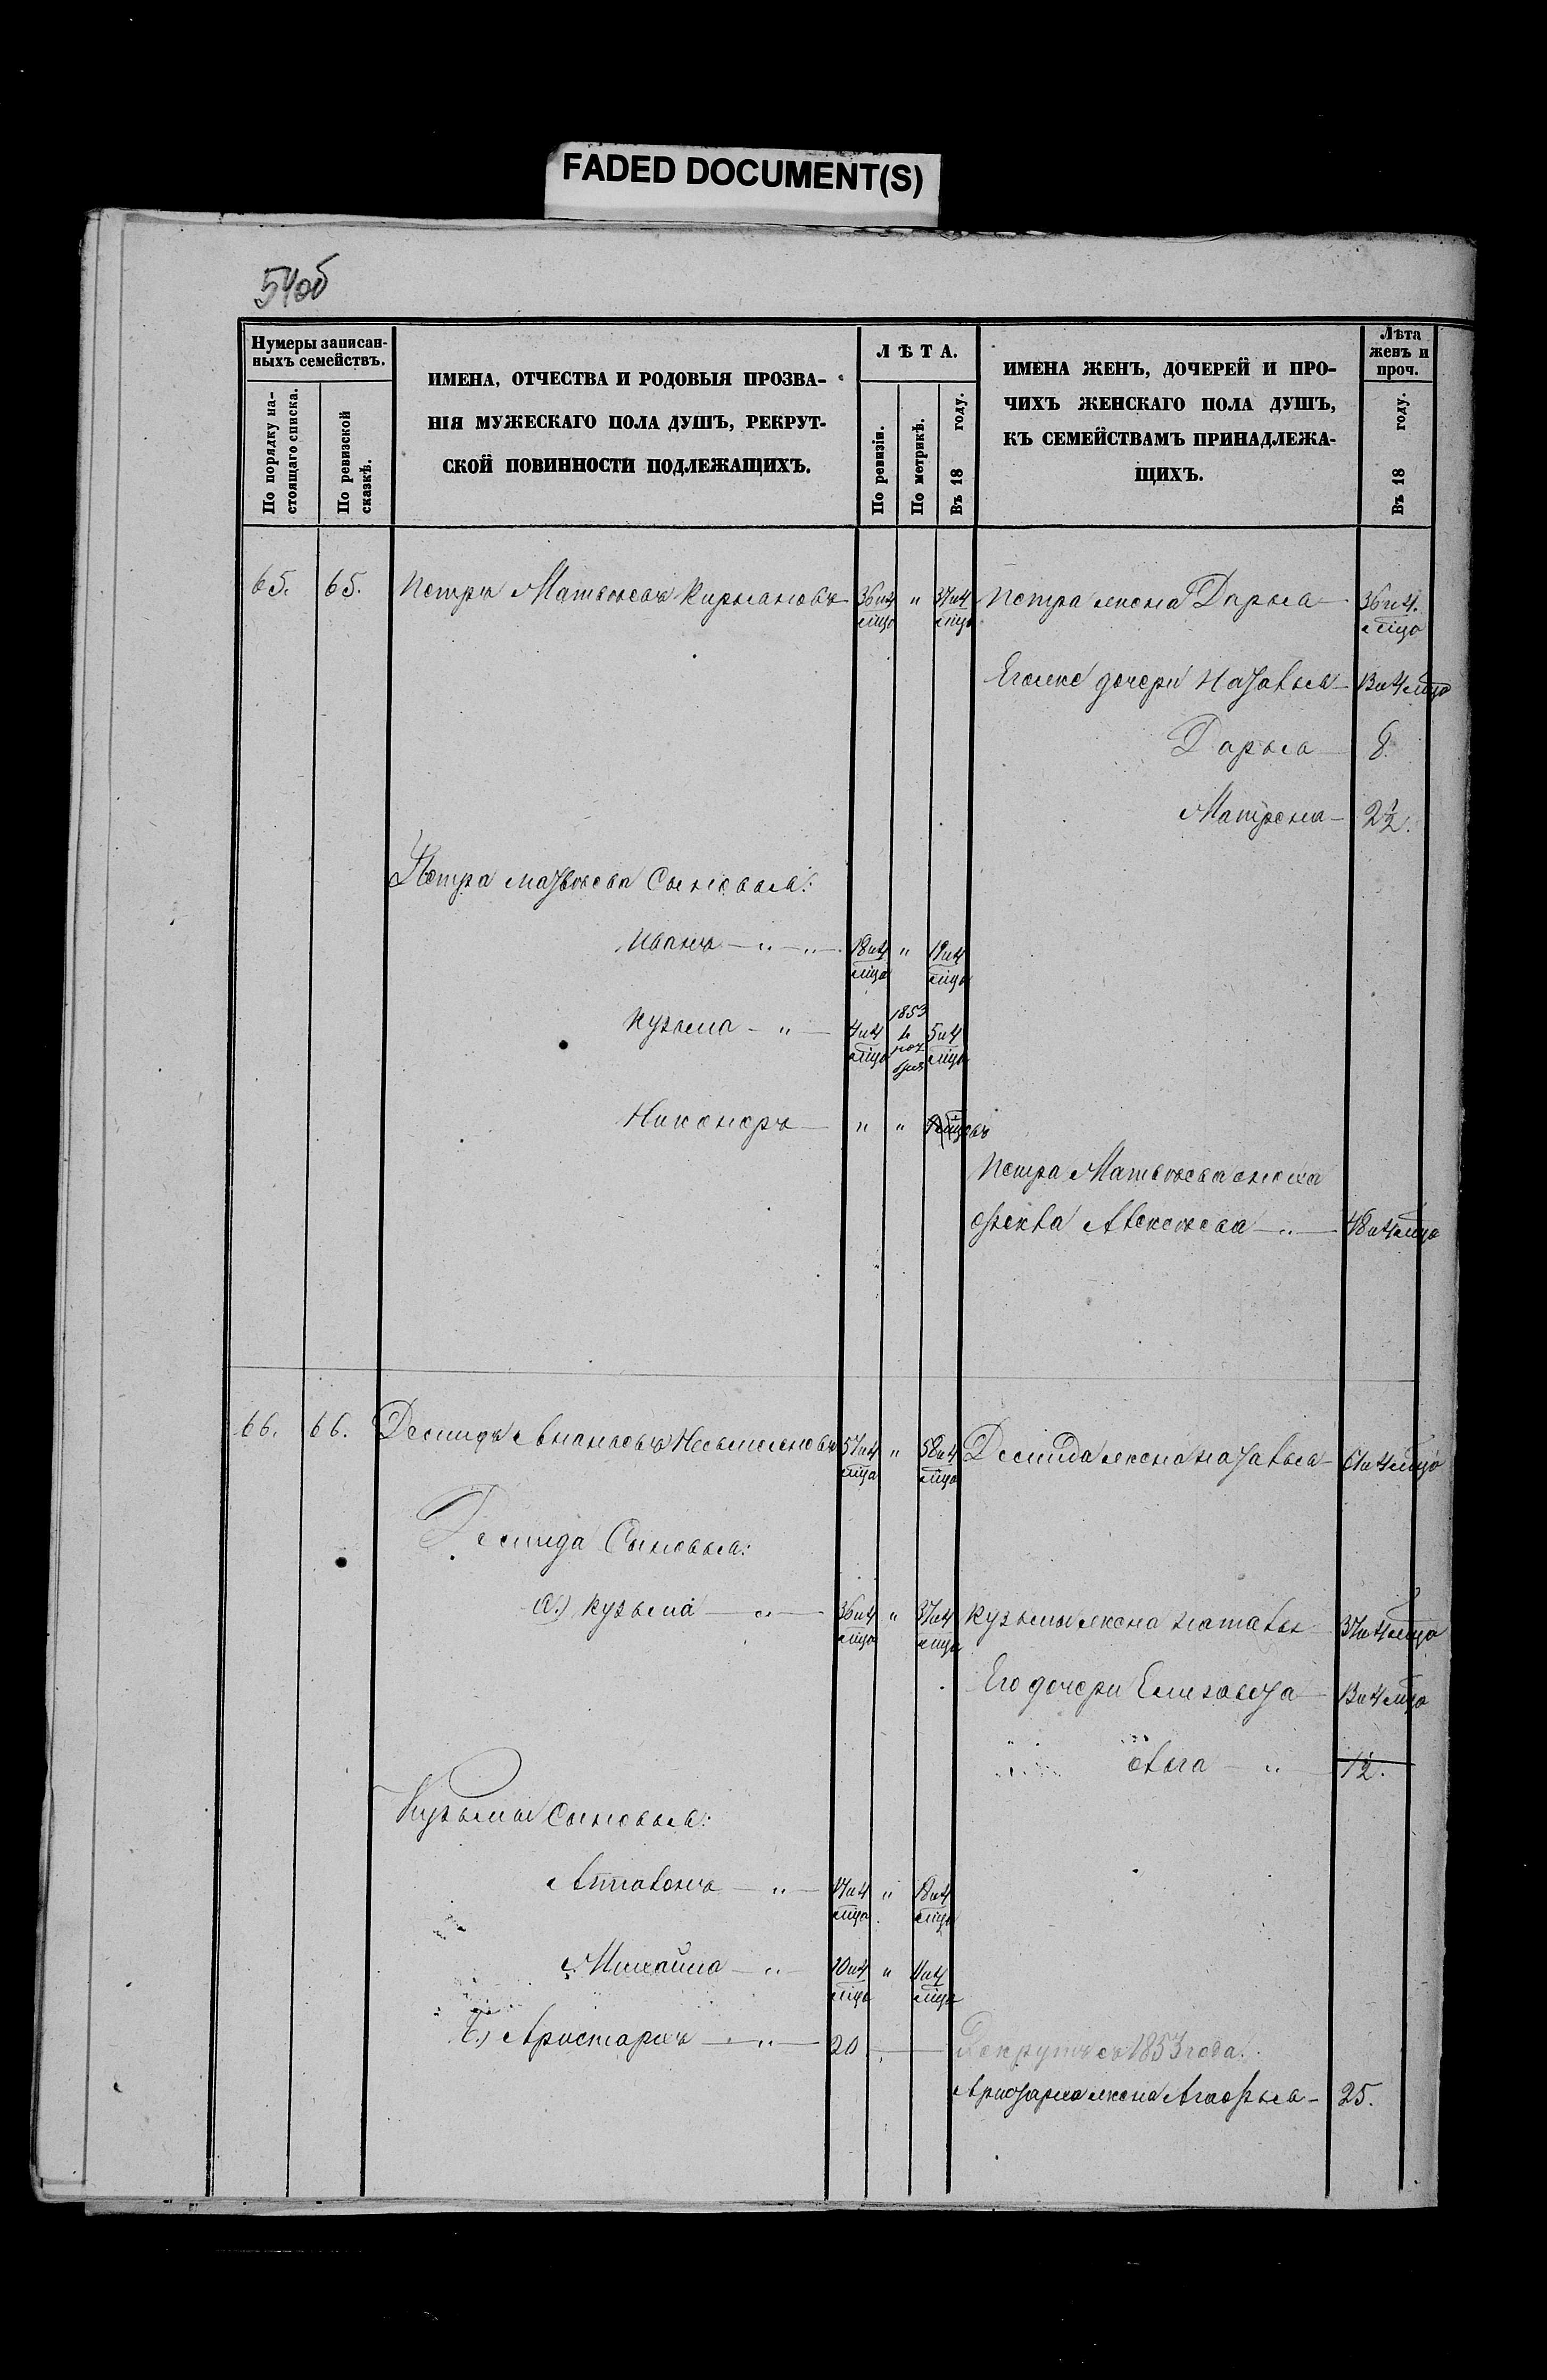 FADED DOCUMENT(S)
54об
Нумеры записан-
ныхъ семействъ.
По порядку на-
стоящаго списка.
По ревизской
сказкѣ.
ИМЕНА, ОТЧЕСТВА И РОДОВЫЯ ПРОЗВА-
НІЯ МУЖЕСКАГО ПОЛА ДУШЪ, РЕКРУТ-
СКОЙ ПОВИННОСТИ ПОДЛЕЖАЩИХЪ.
ЛѢТА.
По ревизіи.
По метрикѣ.
Въ 18 году.
ИМЕНА ЖЕНЪ, ДОЧЕРЕЙ И ПРО-
ЧИХЪ ЖЕНСКАГО ПОЛА ДУШЪ,
КЪ СЕМЕЙСТВАМЪ ПРИНАДЛЕЖА-
ЩИХЪ.
Лѣта
женъ и
проч.
Въ 18 году.
65. 65. Петръ Матвѣевъ Кирьяновъ 36 и 4 мца " 37 и 4 мца Петра жена Дарья 36 и 4. мца
Его же дочери Наталья 13 и 4 мца
Дарья 8.
Матрена 2½.
Петра Матвѣева Сыновья:
Иванъ 18 и 4 мца " 19 и 4 мца
Кузьма 4 и 4 мца 1853 ноября 5 и 4 мца
Никоноръ " "
Петра Матвѣева
Фекла Алексѣева 48 и 4 мца
66. 66. Демидъ 57 и 4 мца " 58 и 4 мца Демида жена Наталья 61 и 4 мца
Демида Сыновья:
а.) Кузьма 36 и 4 мца " 37 и 4 мца Кузьмы жена Наталья 37 и 4 мца
Его дочери Елизавета 13 и 4 мца
Ольга ½.
Кузьмы Сыновья:
17 и 4 мца " 18 и 4 мца
Михайла 10 и 4 мца " 11 и 4 мца
б.) Аристархъ 20 Рекрутъ съ 1853 года.
Аристарха жена 25.